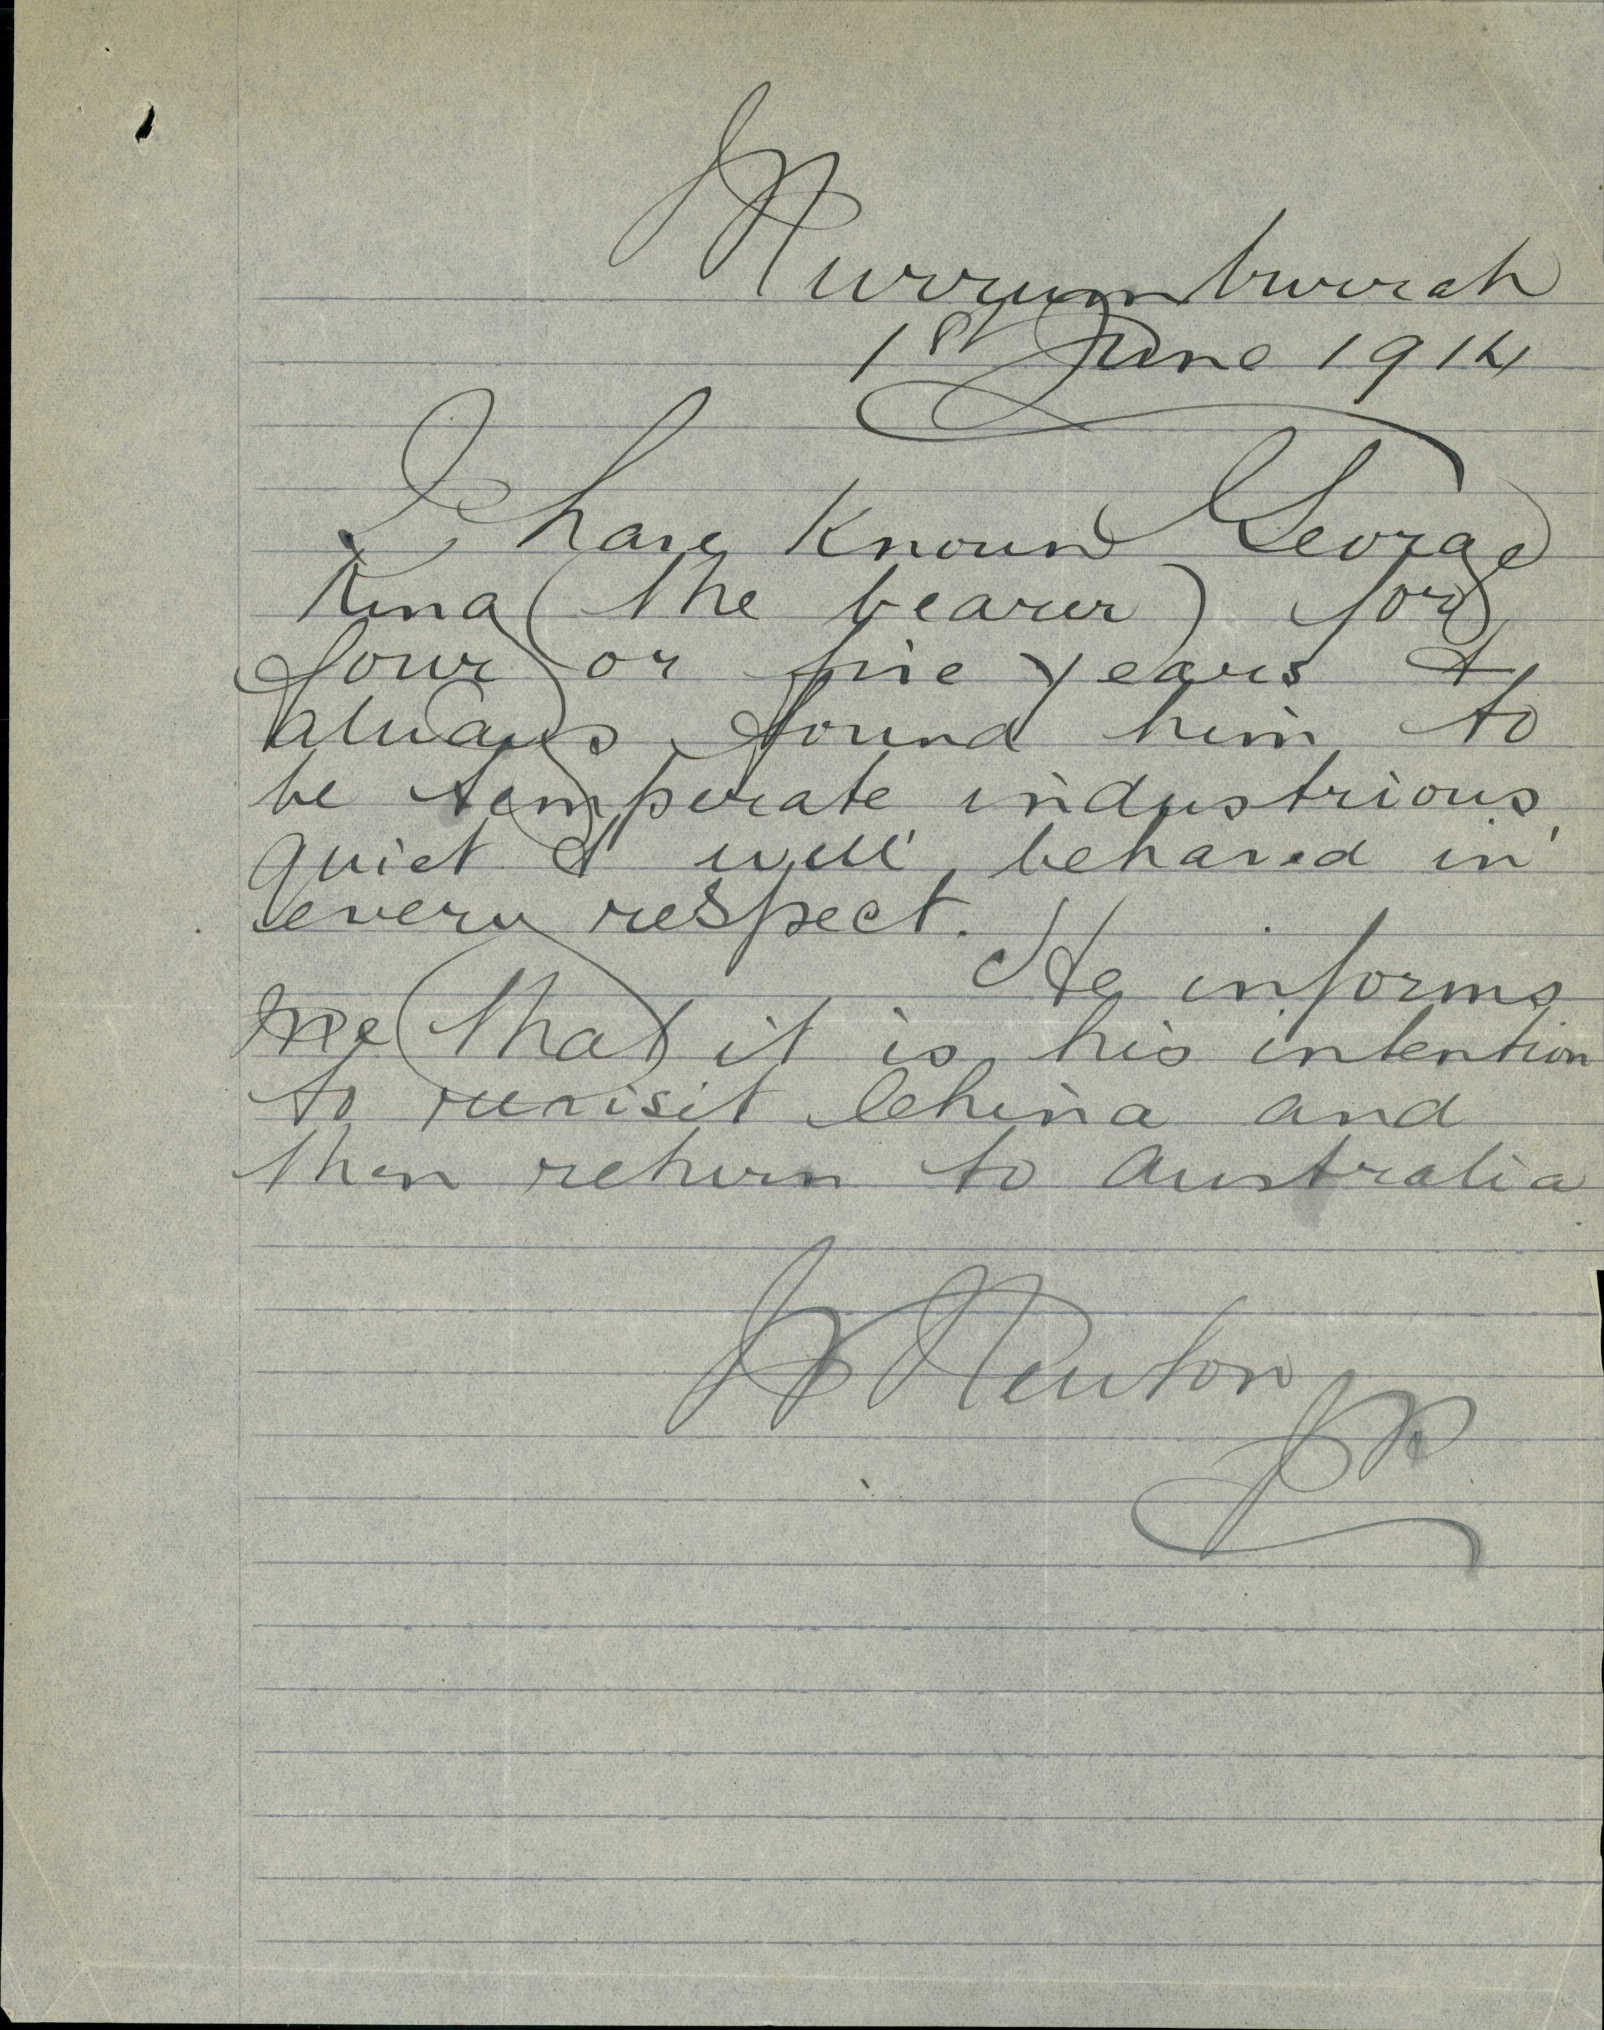 Murrumburrah
1st June 1914
I have known George
King (the bearer) for
four or five years &
always found him to
be temperate industrious,
quiet & well behaved in
every respect.
He informs
me that it is his intention
to revisit China and
then return to Australia
Newton
JP